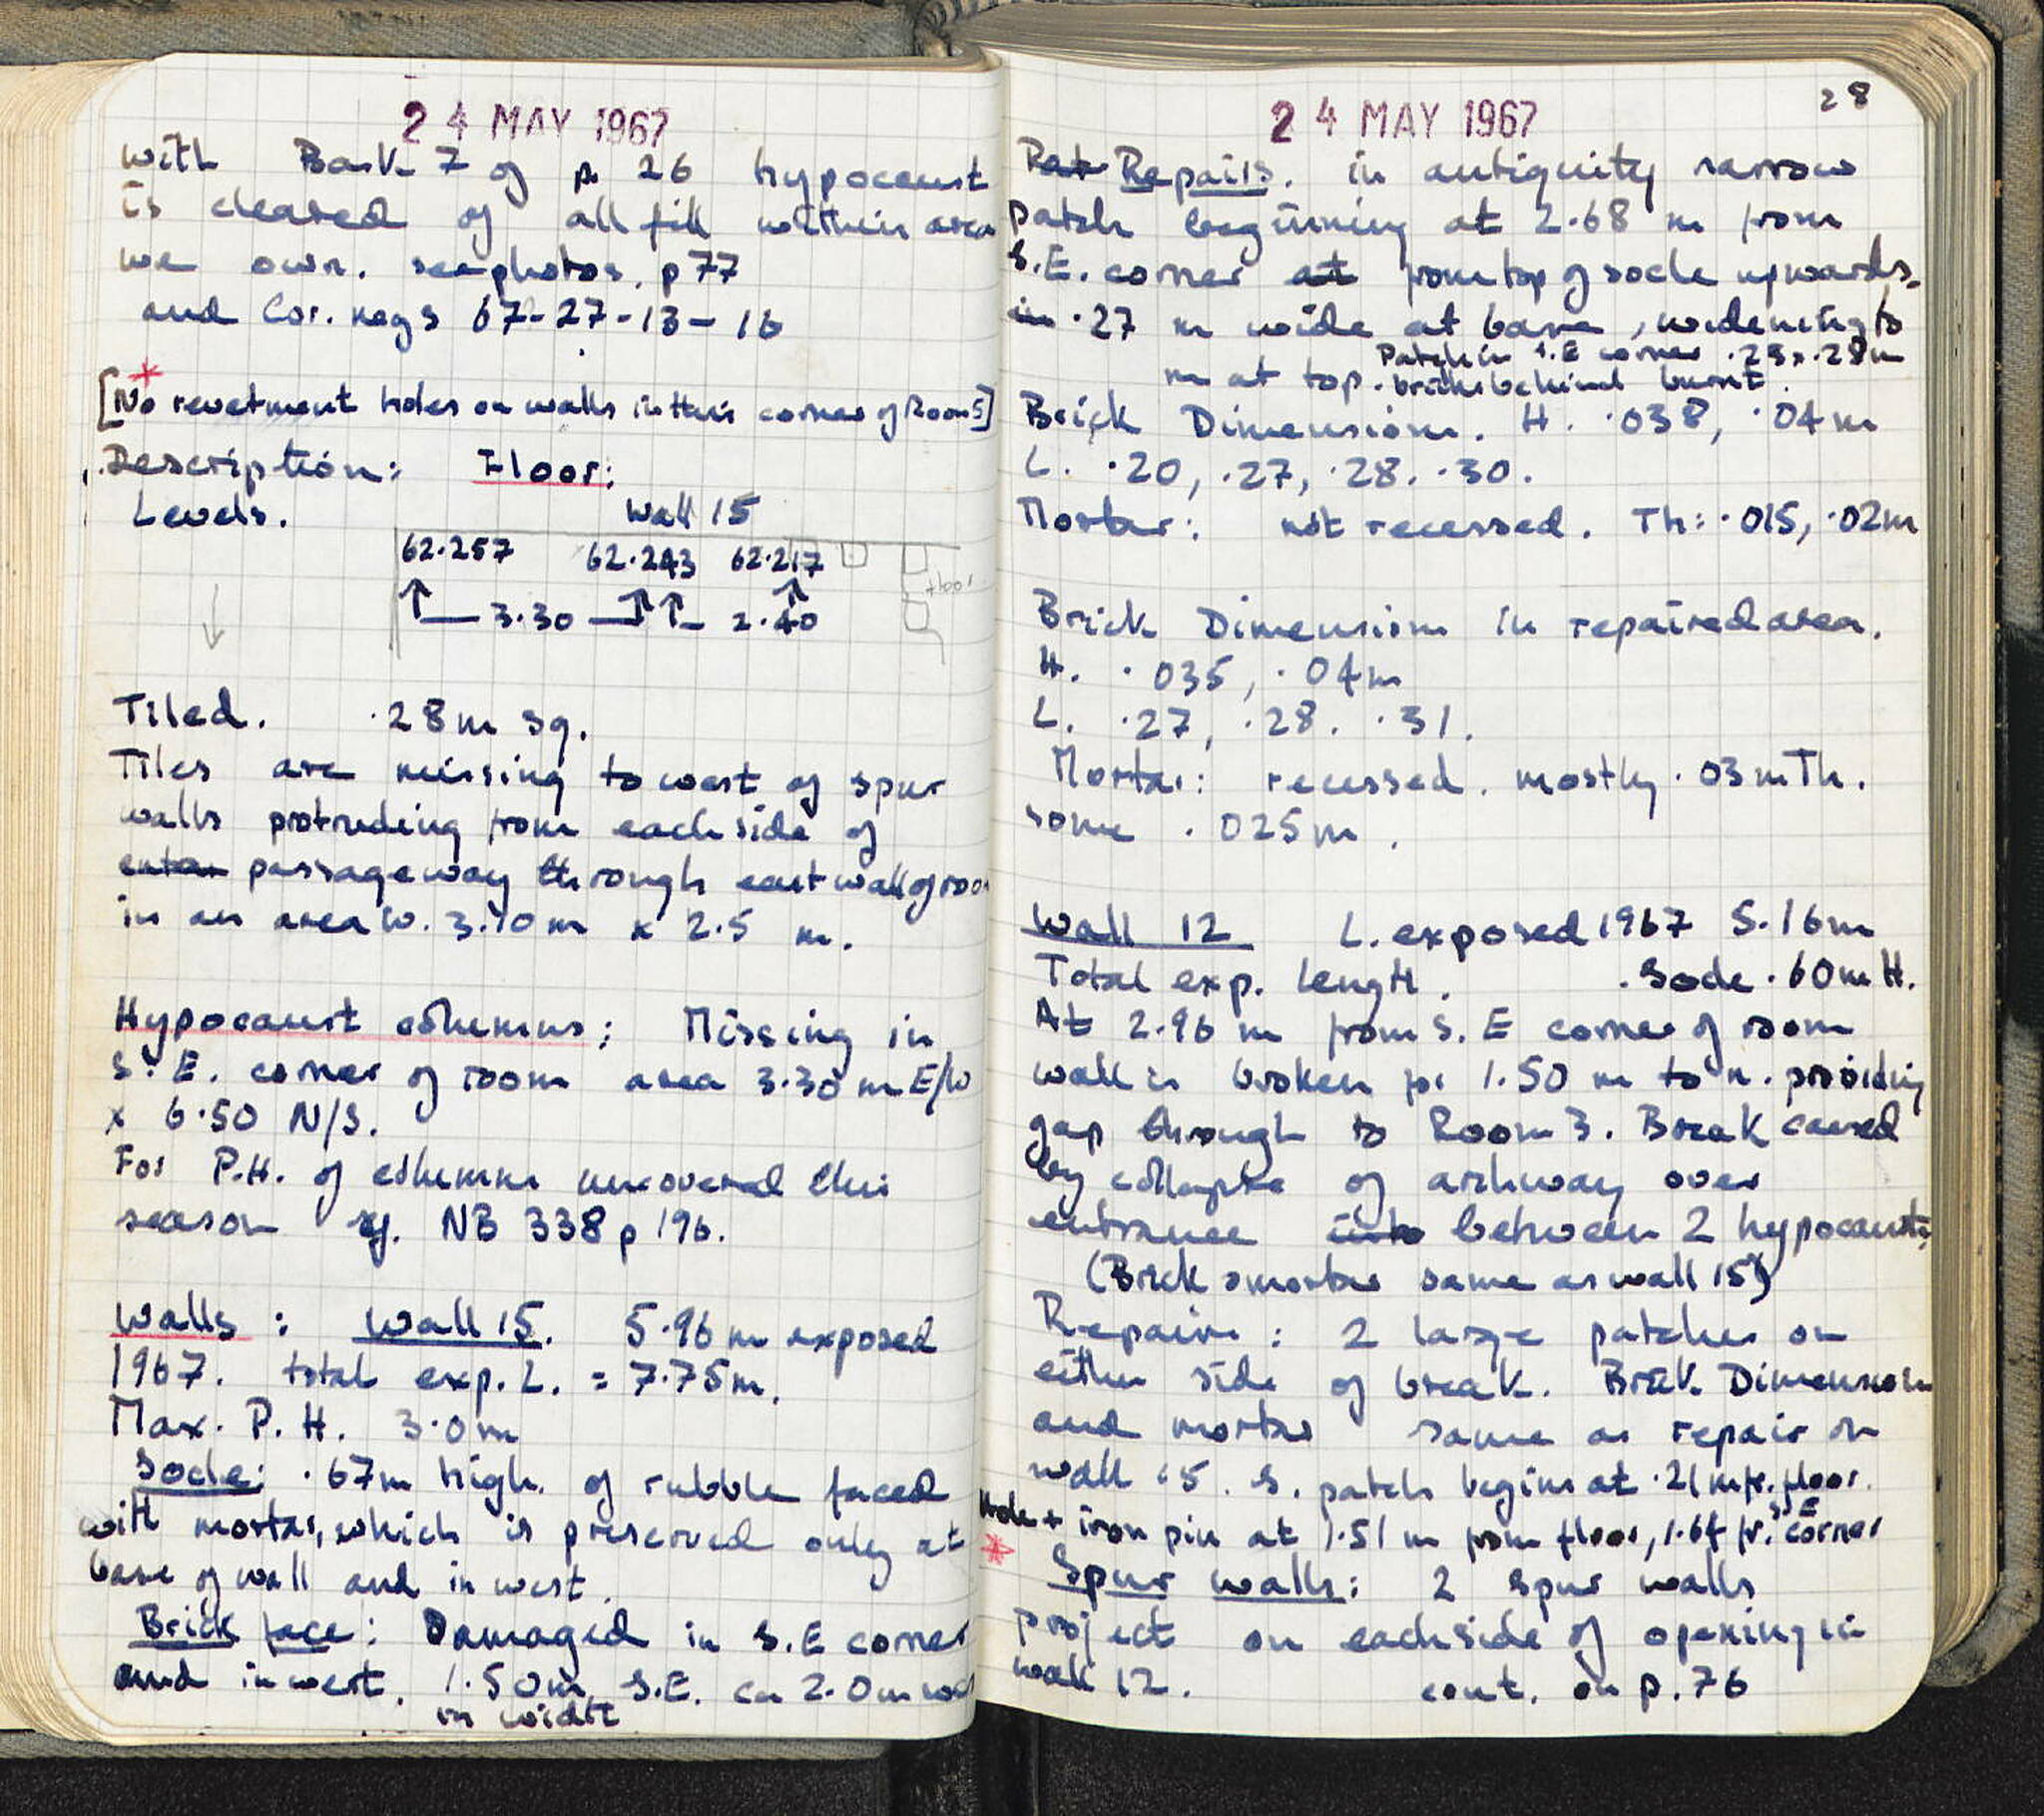 24 MAY 1967
with Bask. 7 of p 26 hypocaust
is cleared of all fill within area
we own. see photos. p 77
and Cor. negs 67-27-13-16
*
[No revetment holes on walls in this corner of Room 5]
Description: Floor:
Levels. Wall 15
62.257 62.243 62.217
floor
3.30 2.40
Tiled. .28m sq.
Tiles are missing to west of spur
walls protruding from each side of
passageway through east wall of room
in an area W. 3.10m x 2.5 m.
Hypocaust columns: Missing in
S.E. corner of room area 3.30 m E/W
x 6.50 N/S.
For P.H. of columns uncovered this
season cf. NB 338 p 196.
Walls: Wall 15. 5.96 m exposed
1967. total exp. L. = 7.75m.
Max. P.H. 3.0m
Socle: .67m high. of rubble faced
with mortar, which is preserved only at
base of wall and in west.
Brick face: Damaged in S.E corner
and in west. 1.50m S.E. ca 2.0m west
in width
28
24 MAY 1967
Repairs. in antiquity narrow
patch beginning at 2.68 m from
S.E. corner at from top of socle upwards.
in .27 m wide at base, widening to
Patch in S.E corner .25 x .28m
m at top. bricks behind burnt.
Brick Dimensions. H. .038, .04m
L. .20, .27, .28. .30.
Mortar: not recessed. Th: .015, .02m
Brick Dimensions in repaired area.
H. .035, .04m
L. .27, .28. .31.
Mortar: recessed. mostly .03m Th.
some .025m.
Wall 12 L. exposed 1967 5.16m
Total exp. length. . Socle .60m H.
At 2.96 m from S.E corner of room
wall is broken for 1.50 m to n. providing
gap through to Room 3. Break caused
by collapse of archway over
entrance into between 2 hypocausts
(Brick & mortar same as wall 15)
Repairs: 2 large patches on
either side of break. Brick Dimensions
and mortar same as repair on
wall 15. S. patch begins at .21 m fr. floor.
Hole + iron pin at 1.51 m from floor, 1.64 fr. S E corner
*
Spur walls: 2 spur walls
project on each side of opening in
wall 12. cont. on p. 76